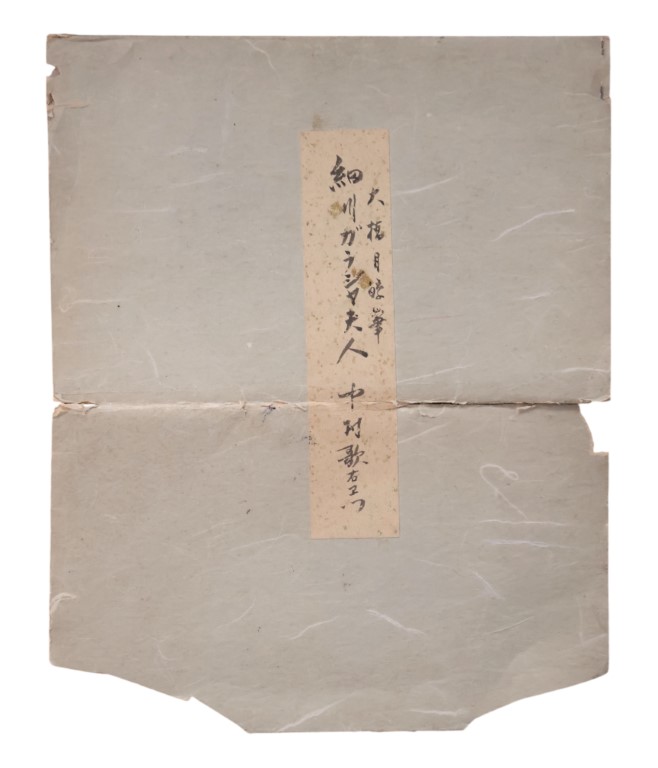 大橋月皎筆
細川ガラシヤ夫人 中村歌右エ門